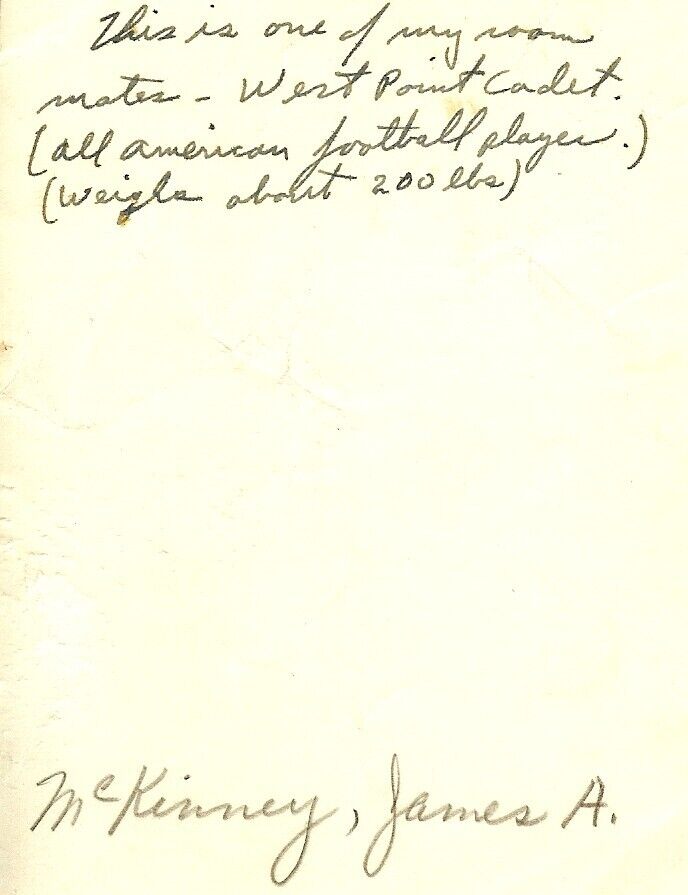 This is one of my room
mates - West Point Cadet.
(all american football player.)
(Weighs about 200 lbs)
McKinney, James A.